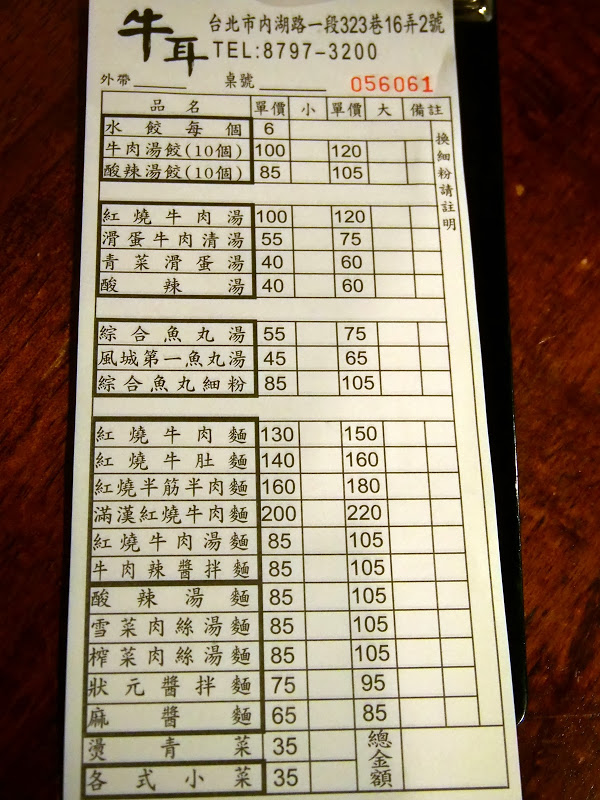 牛耳 台北市內湖路一段323巷16弄2號
TEL:8797-3200
外帶 桌號 056061
品名 單價 小 單價 大 備註
水餃每個 6
牛肉湯餃(10個) 100 120
酸辣湯餃(10個) 85 105
換細粉請註明
紅燒牛肉湯 100 120
滑蛋牛肉清湯 55 75
青菜滑蛋湯 40 60
酸辣湯 40 60
綜合魚丸湯 55 75
風城第一魚丸湯 45 65
綜合魚丸細粉 85 105
紅燒牛肉麵 130 150
紅燒牛肚麵 140 160
紅燒半筋半肉麵 160 180
滿漢紅燒牛肉麵 200 220
紅燒牛肉湯麵 85 105
牛肉辣醬拌麵 85 105
酸辣湯麵 85 105
雪菜肉絲湯麵 85 105
榨菜肉絲湯麵 85 105
狀元醬拌麵 75 95
麻醬麵 65 85
燙青菜 35
各式小菜 35
總金額